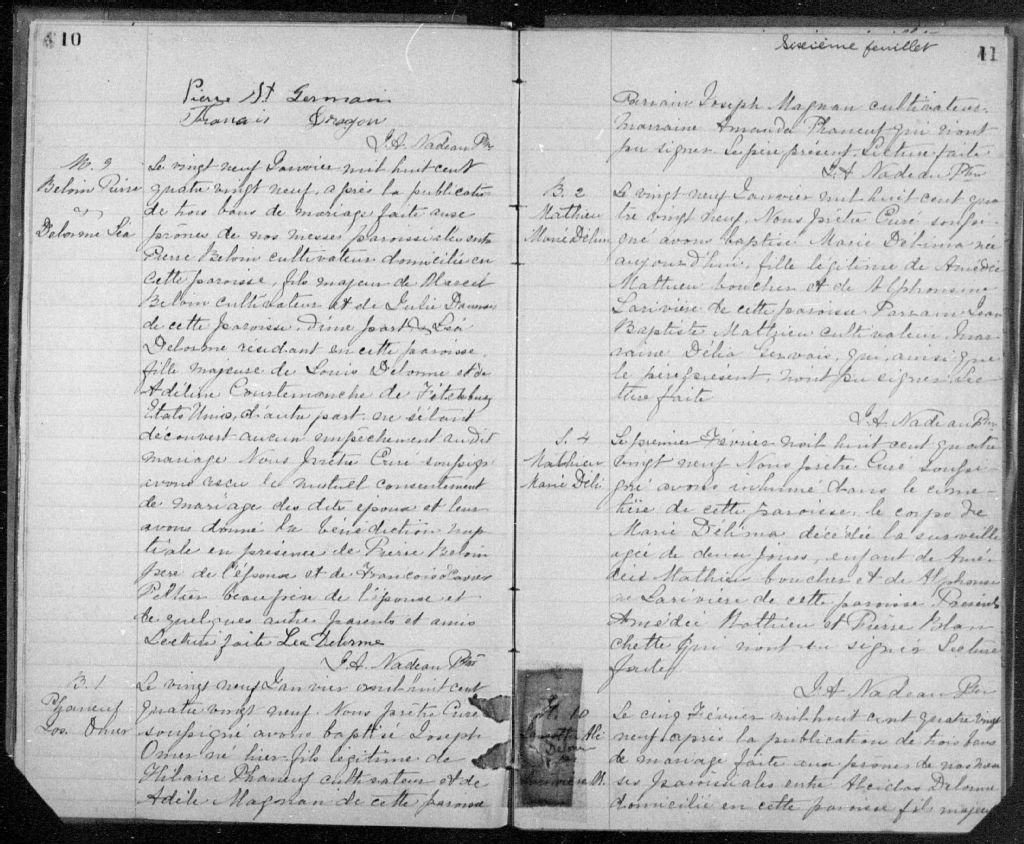 10
Pierre St Germain
Dragon
J.A. Nadeau Ptre
M. 9
Beloin Pierre
&
Delorme Léa
Le vingt neuf Janvier mil huit cent
quatre vingt neuf, après la publication
de trois bans de mariage faite aux
prônes de nos messes paroissiales entre
Pierre Beloin cultivateur domicilié en
cette paroisse, fils majeur de Marcel
Beloin cultivateur et de Julie
de cette paroisse d'une part & Léa
Delorme résidant en cette paroisse,
fille majeure de Louis Delorme et de
Adéline Courtemanche de Fitchburg
Etats Unis, d'autre part, ne s'étant
découvert aucun empêchement au dit
mariage Nous Prêtre Curé soussigné
avons reçu le mutuel consentement
de mariage des dits époux et leur
avons donné la bénédiction nup
tiale en présence de Pierre Beloin
père de l'époux et de François
Peltier beaufrère de l'épouse et
de quelques autres parents et amis
Lecture faite Lea Delorme
J.A. Nadeau Ptre
B. 1
Phaneuf
Jos. Omer
Le vingt neuf Janvier mil huit cent
quatre vingt neuf Nous Prêtre Curé
soussigné avons baptisé Joseph
Omer né hier fils légitime de
Hilaire Phaneuf cultivateur et de
Adèle Magnan de cette paroisse
Sixième feuillet
11
Parrain Joseph Magnan cultivateur
Marraine Amanda Phaneuf qui n'ont
pu signer Le père présent, Lecture faite
J.A. Nadeau Ptre
B. 2
Mathieu
Marie Délima
Le vingt neuf Janvier mil huit cent qua
tre vingt neuf, Nous Prêtre Curé soussi
gné avons baptisé Marie Délima née
aujourd'hui, fille légitime de Amédée
Mathieu boucher et de Alphonsine
Larivière de cette paroisse Parrain Jean
Baptiste Mathieu cultivateur, mar
raine Délia Servais, qui, ainsi que
le père présent, n'ont pu signer Lec
ture faite
J.A. Nadeau Ptre
S. 4
Mathieu
Marie Déli
Le premier Février mil huit cent quatre
vingt neuf Nous prêtre Curé soussi
gné avons inhumé dans le cime
tière de cette paroisse, le corps de
Marie Délima décédée la surveille
agée de deux jours, enfant de Amé
dée Mathieu boucher et de Alphonsi
ne Larivière de cette paroisse Présents
Amédée Mathieu et Pierre Blan
chette qui n'ont su signer Lecture
faite
J.A. Nadeau Ptre
M. 10
Delorme
&
Le cinq Février mil huit cent quatre vingt
neuf, après la publication de trois bans
de mariage faite aux prônes de nos mes
ses paroissiales entre Alcidas Delorme
domicilié en cette paroisse fils majeur